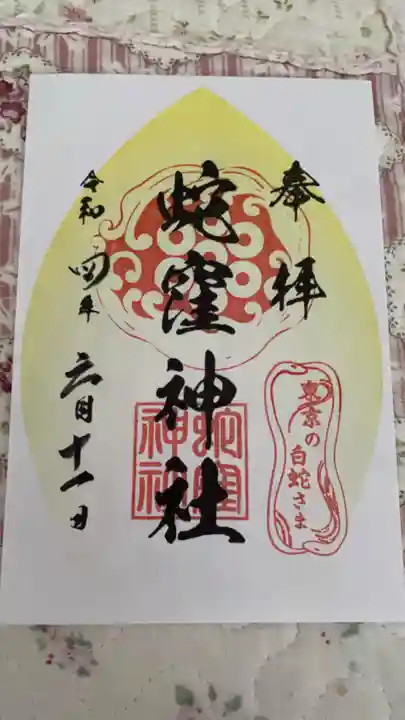 奉拝
東京の
白蛇さま
蛇窪神社
令和四年
六月十一日